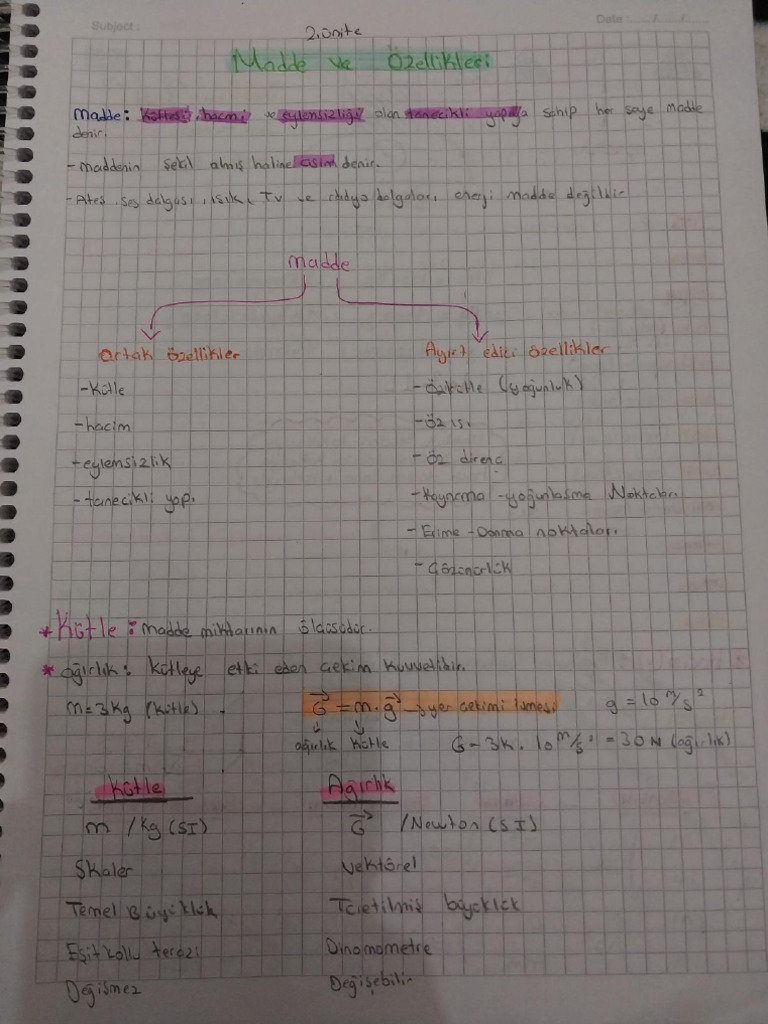 Subject:
Date: / /
2.ünite
Madde ve Özellikleri
Madde: Kütlesi, hacmi ve eylemsizliği olan tanecikli yapıya sahip her şeye madde
denir.
- maddenin şekil almış haline cisim denir.
- Ateş, ses dalgası, ışık, TV ve radyo dalgaları, enerji madde değildir.
madde
ortak özellikler
Ayırt edici özellikler
- kütle
- Özkütle (yoğunluk)
- hacim
- Öz ısı
- eylemsizlik
- Öz direnç
- tanecikli yapı
- Kaynama - yoğunlaşma Noktaları
- Erime - Donma noktaları
- Çözünürlük
* Kütle: madde miktarının ölçüsüdür.
* ağırlık: kütleye etki eden çekim kuvvetidir.
m=3kg (kütle) G = m.g → yer çekimi ivmesi g = 10 m/s²
ağırlık kütle G = 3k. 10 m/s² = 30 N (ağırlık)
Kütle Ağırlık
m / kg (SI) G / Newton (SI)
Skaler Vektörel
Temel Büyüklük Türetilmiş büyüklük
Eşit kollu terazi Dinamometre
Değişmez Değişebilir